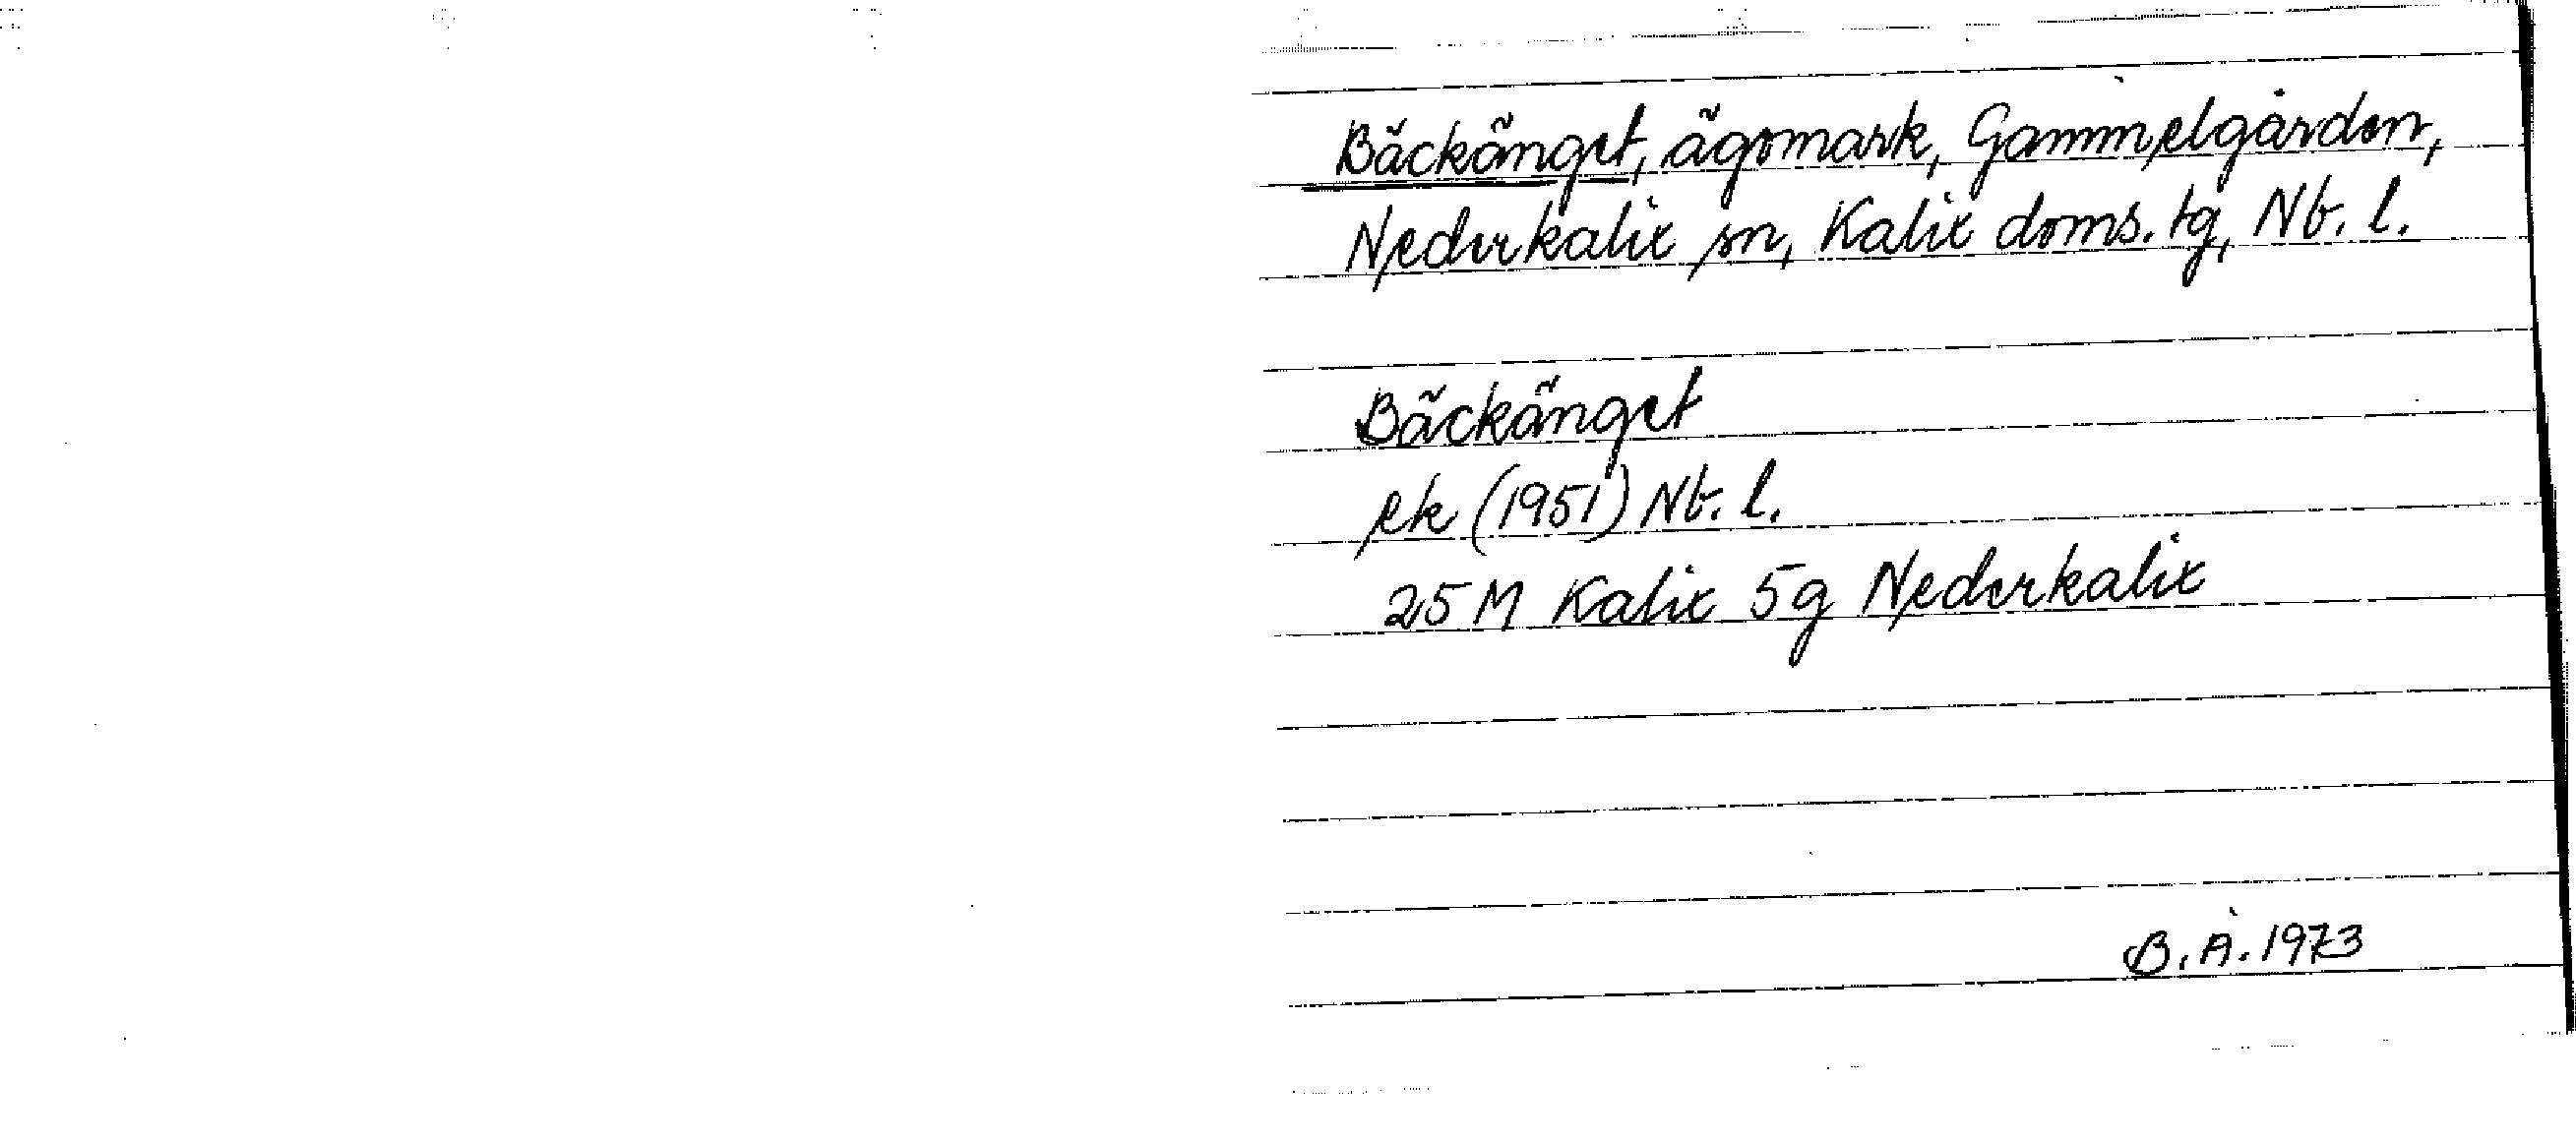 Bäckänget, ägomark, Gammelgården,
Nederkalix sn, Kalix doms. tg, Nb. l.
Bäckänget
ek (1951) Nb. l.
25 M Kalix 5g Nederkalix
B. Å. 1973